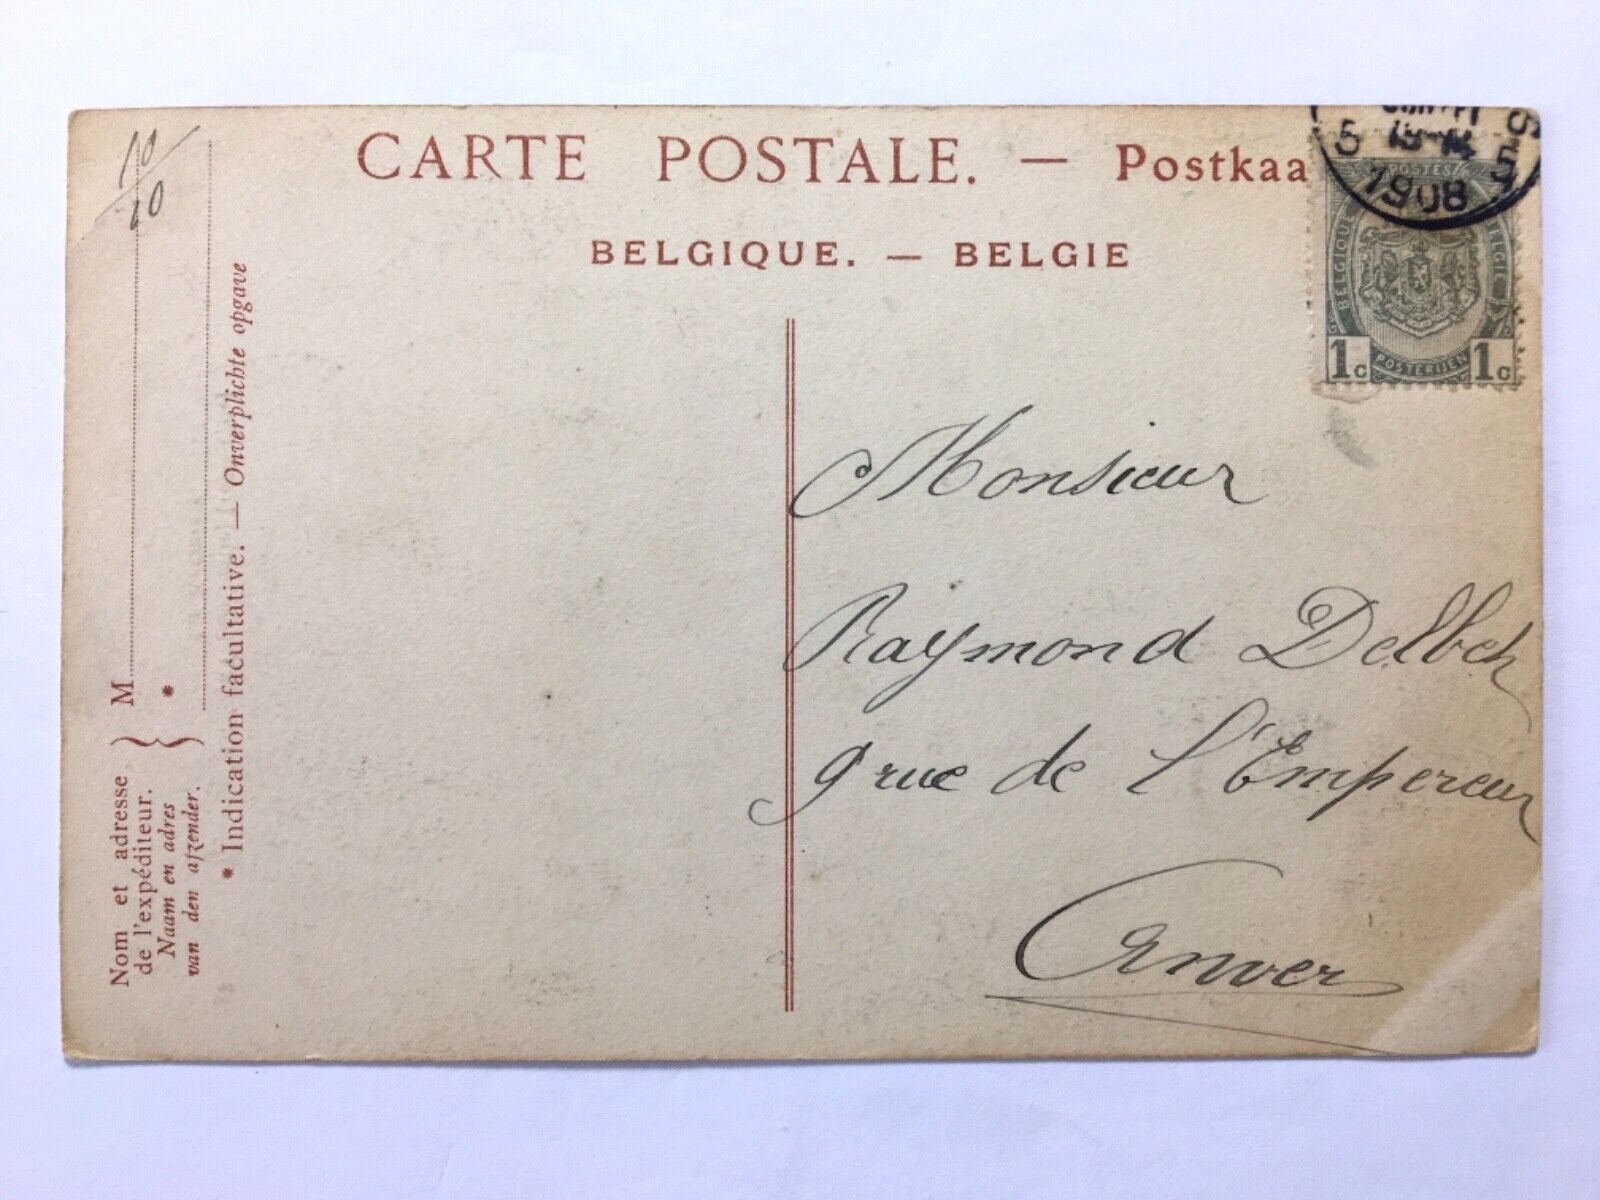 CARTE POSTALE. — Postkaa
BELGIQUE. — BELGIE
5 13-14 5
1908
POSTES
BELGIQUE BELGIE
1c POSTERIJEN 1c
Monsieur
Raymond Delbeh
9 rue de l'Empereur
Anvers
10/10
M
*
Nom et adresse
de l'expéditeur.
Naam en adres
van den afzender.
* Indication facultative. — Onverplichte opgave